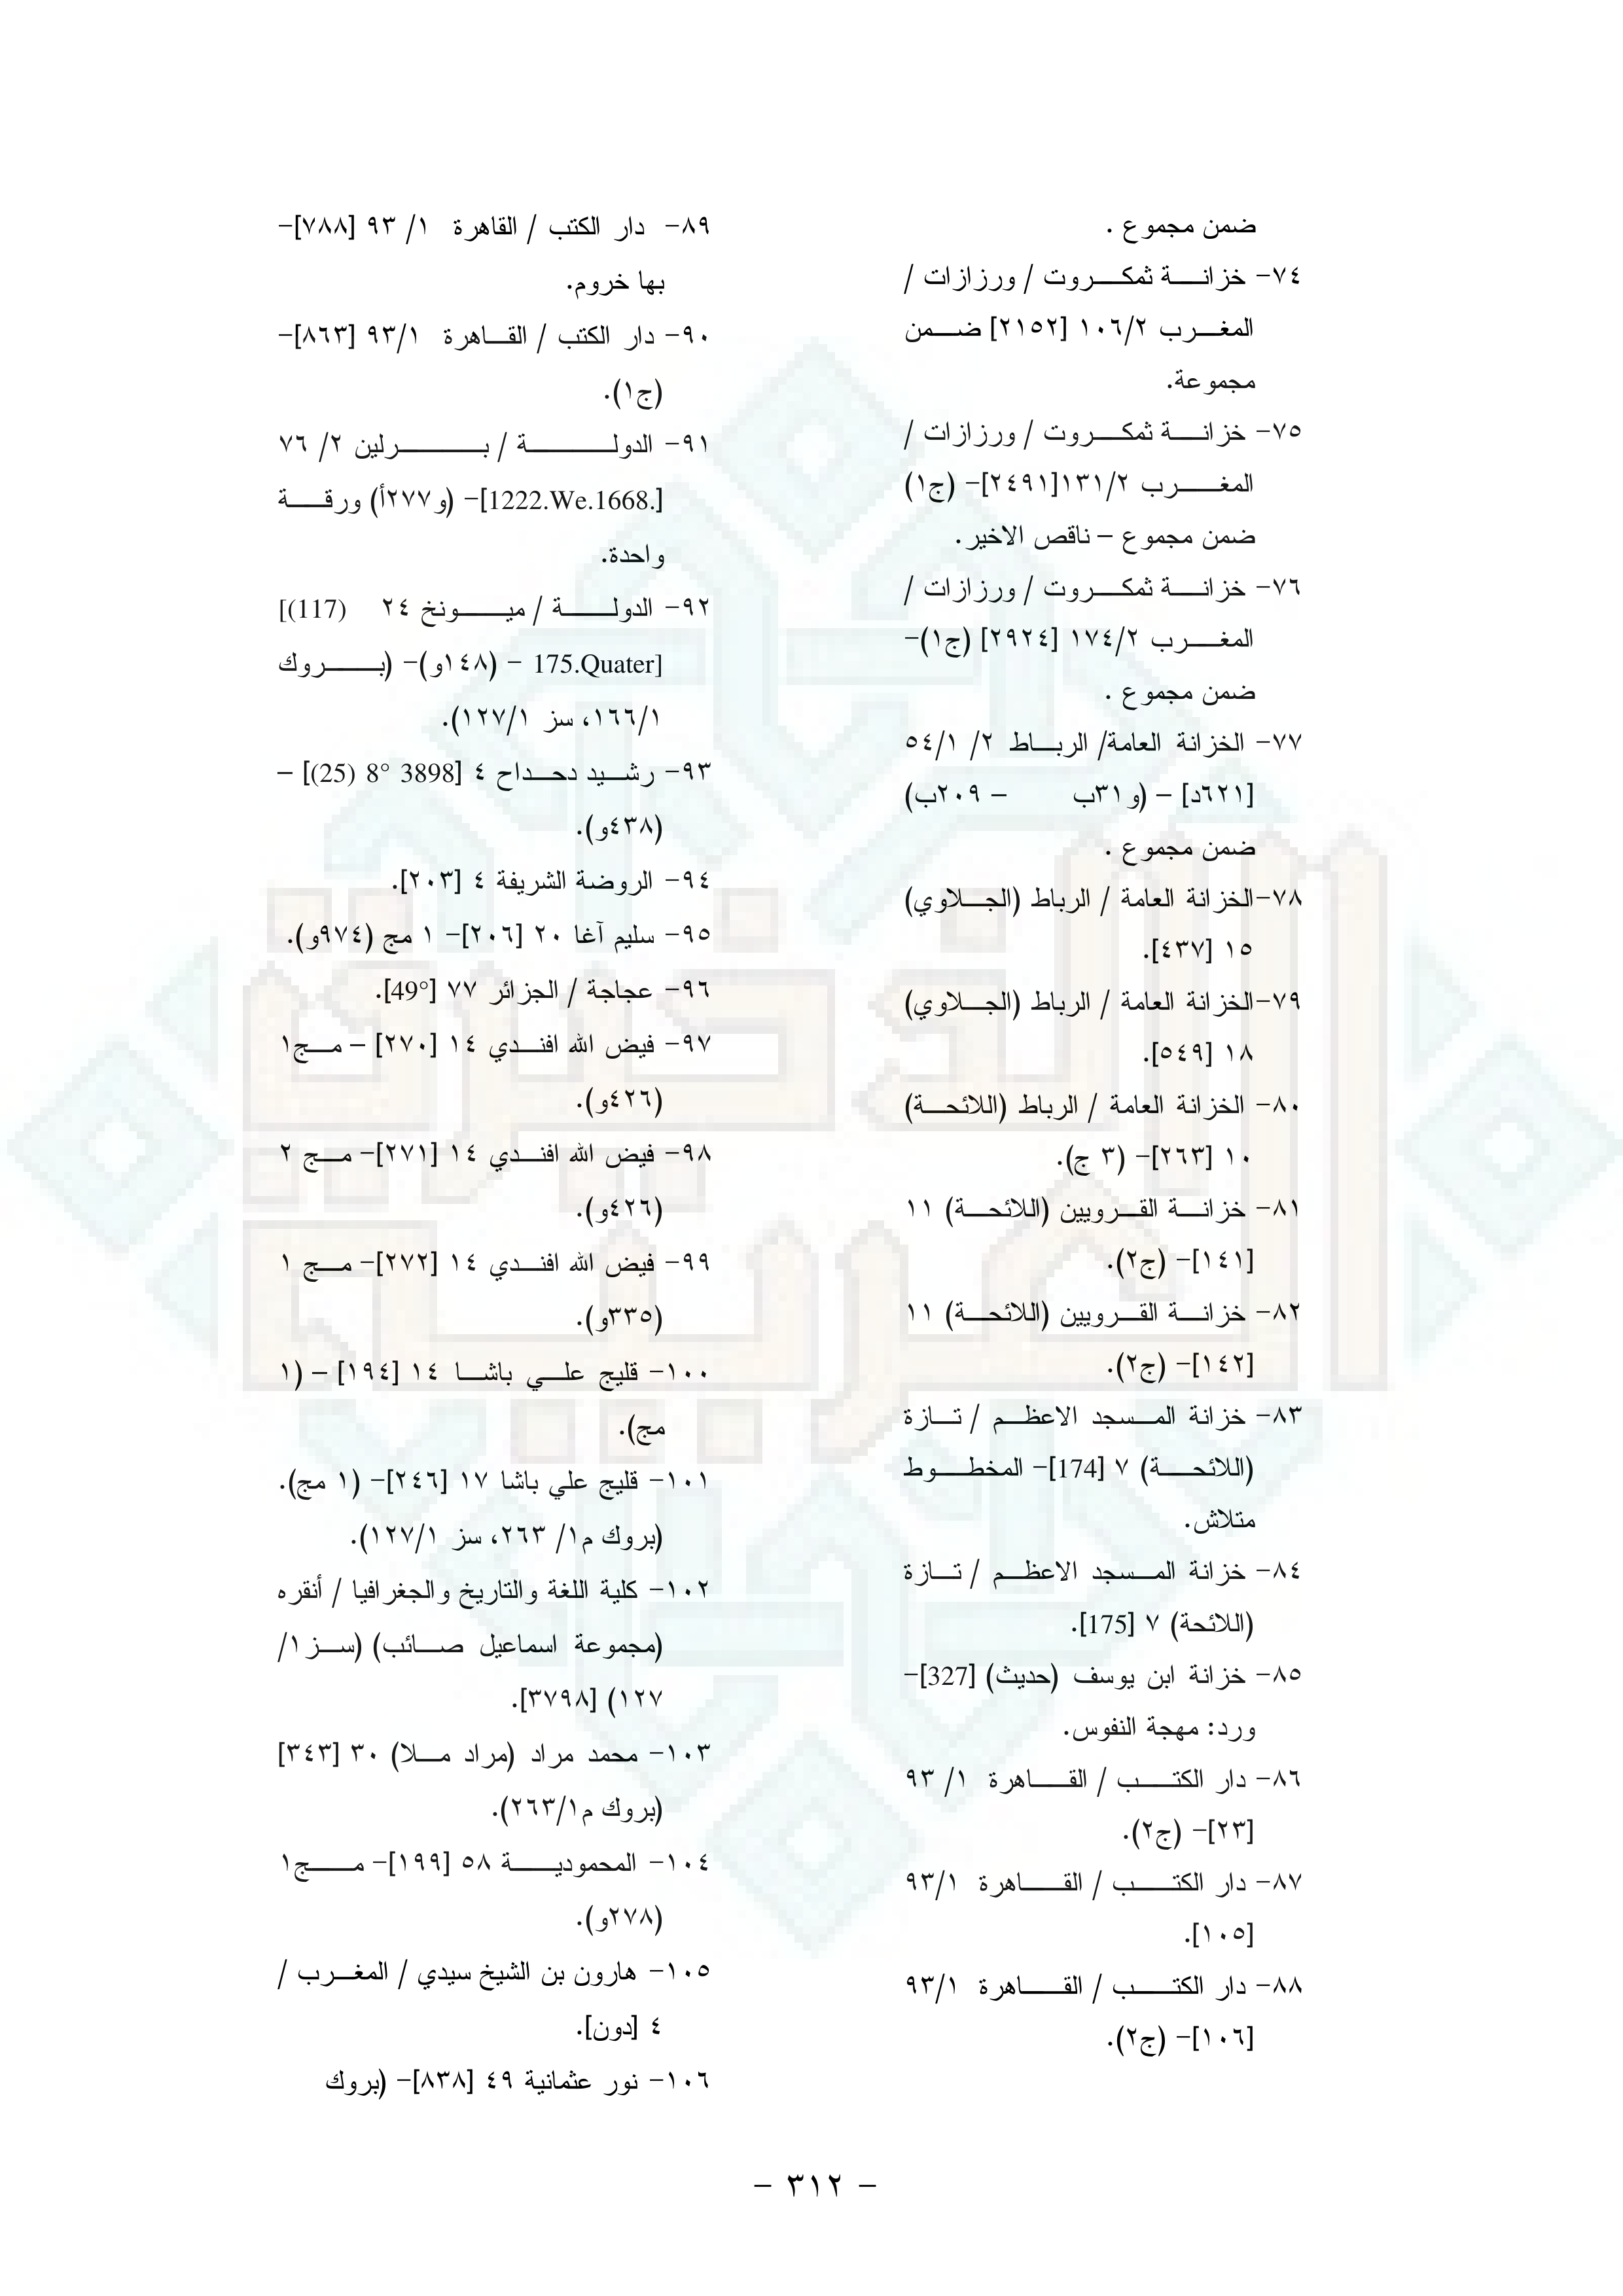 ضمن مجموع .
٧٤- خزانة ثمكروت / ورزازات /
المغرب ١٠٦/٢ [٢١٥٢] ضمن
مجموعة.
٧٥- خزانة ثمكروت / ورزازات /
المغرب ١٣١/٢[٢٤٩١]- (ج١)
ضمن مجموع – ناقص الاخير.
٧٦- خزانة ثمكروت / ورزازات /
المغرب ١٧٤/٢ [٢٩٢٤] (ج١)-
ضمن مجموع .
٧٧- الخزانة العامة/ الرباط ٢/ ٥٤/١
[٦٢١د] – (و٣١ب – ٢٠٩ب)
ضمن مجموع .
٧٨-الخزانة العامة / الرباط (الجلاوي)
١٥ [٤٣٧].
٧٩-الخزانة العامة / الرباط (الجلاوي)
١٨ [٥٤٩].
٨٠- الخزانة العامة / الرباط (اللائحة)
١٠ [٢٦٣]- (٣ ج).
٨١- خزانة القرويين (اللائحة) ١١
[١٤١]- (ج٢).
٨٢- خزانة القرويين (اللائحة) ١١
[١٤٢]- (ج٢).
٨٣- خزانة المسجد الاعظم / تازة
(اللائحة) ٧ [174]- المخطوط
متلاش.
٨٤- خزانة المسجد الاعظم / تازة
(اللائحة) ٧ [175].
٨٥- خزانة ابن يوسف (حديث) [327]-
ورد: مهجة النفوس.
٨٦- دار الكتب / القاهرة ١/ ٩٣
[٢٣]- (ج٢).
٨٧- دار الكتب / القاهرة ٩٣/١
[١٠٥].
٨٨- دار الكتب / القاهرة ٩٣/١
[١٠٦]- (ج٢).
٨٩- دار الكتب / القاهرة ١/ ٩٣ [٧٨٨]-
بها خروم.
٩٠- دار الكتب / القاهرة ٩٣/١ [٨٦٣]-
(ج١).
٩١- الدولة / برلين ٢/ ٧٦
[1222.We.1668.]- (و٢٧٧أ) ورقة
واحدة.
٩٢- الدولة / ميونخ ٢٤ (117)]
[175.Quater – (١٤٨و)- (بروك
١٦٦/١، سز ١٢٧/١).
٩٣- رشيد دحداح ٤ [3898 8° (25)] –
(٤٣٨و).
٩٤- الروضة الشريفة ٤ [٢٠٣].
٩٥- سليم آغا ٢٠ [٢٠٦]- ١ مج (٩٧٤و).
٩٦- عجاجة / الجزائر ٧٧ [49°].
٩٧- فيض الله افندي ١٤ [٢٧٠] – مج١
(٤٢٦و).
٩٨- فيض الله افندي ١٤ [٢٧١]- مج ٢
(٤٢٦و).
٩٩- فيض الله افندي ١٤ [٢٧٢]- مج ١
(٣٣٥و).
١٠٠- قليج علي باشا ١٤ [١٩٤] – (١
مج).
١٠١- قليج علي باشا ١٧ [٢٤٦]- (١ مج).
(بروك م١/ ٢٦٣، سز ١٢٧/١).
١٠٢- كلية اللغة والتاريخ والجغرافيا / أنقره
(مجموعة اسماعيل صائب) (سز١/
١٢٧) [٣٧٩٨].
١٠٣- محمد مراد (مراد ملا) ٣٠ [٣٤٣]
(بروك م٢٦٣/١).
١٠٤- المحمودية ٥٨ [١٩٩]- مج١
(٢٧٨و).
١٠٥- هارون بن الشيخ سيدي / المغرب /
٤ [دون].
١٠٦- نور عثمانية ٤٩ [٨٣٨]- (بروك
- ٣١٢ -
الذخيرة
العربية